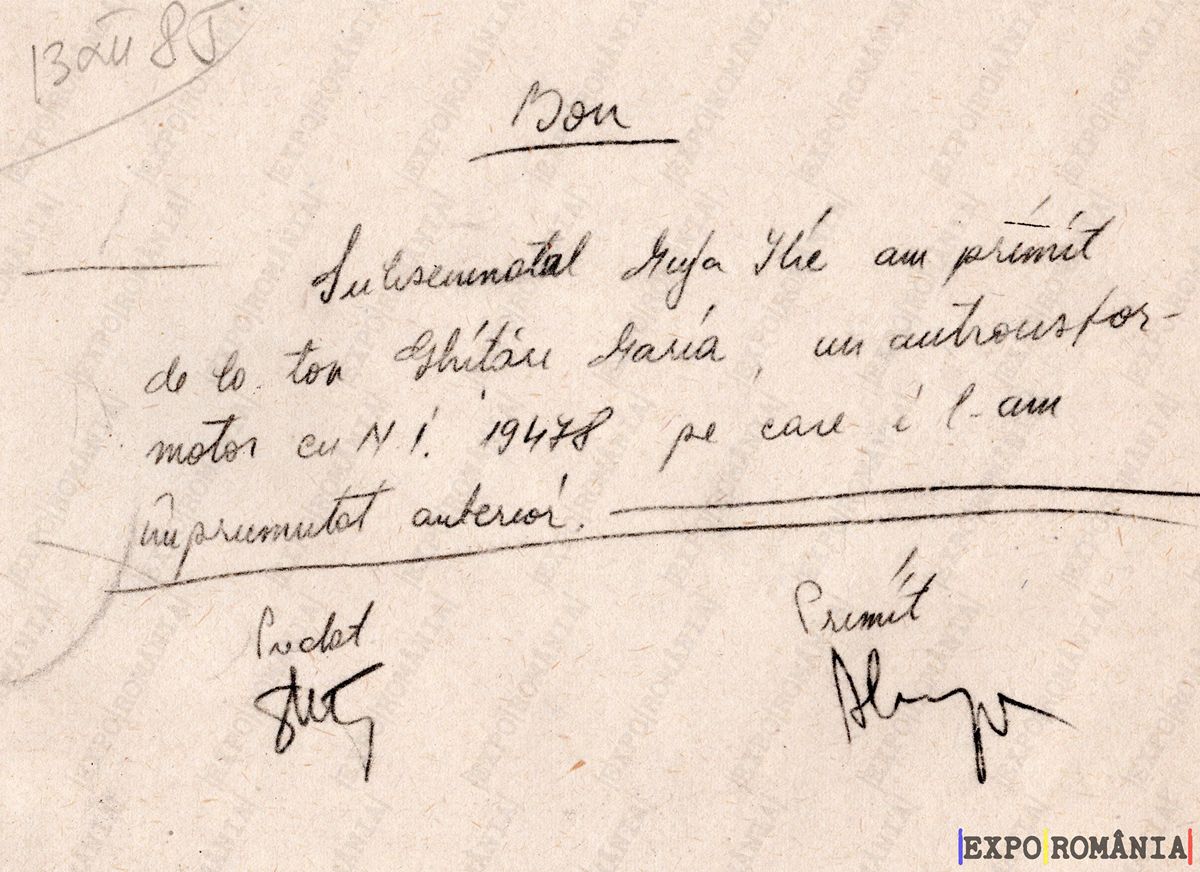 13 XII 85
Bon
Subsemnatul Muja Ilie am primit
de la tov Ghițău Maria, un autrousfor-
mator cu N.I. 19478 pe care i l-am
împrumutat anterior.
Predat
Primit
|EXPO|ROMÂNIA|